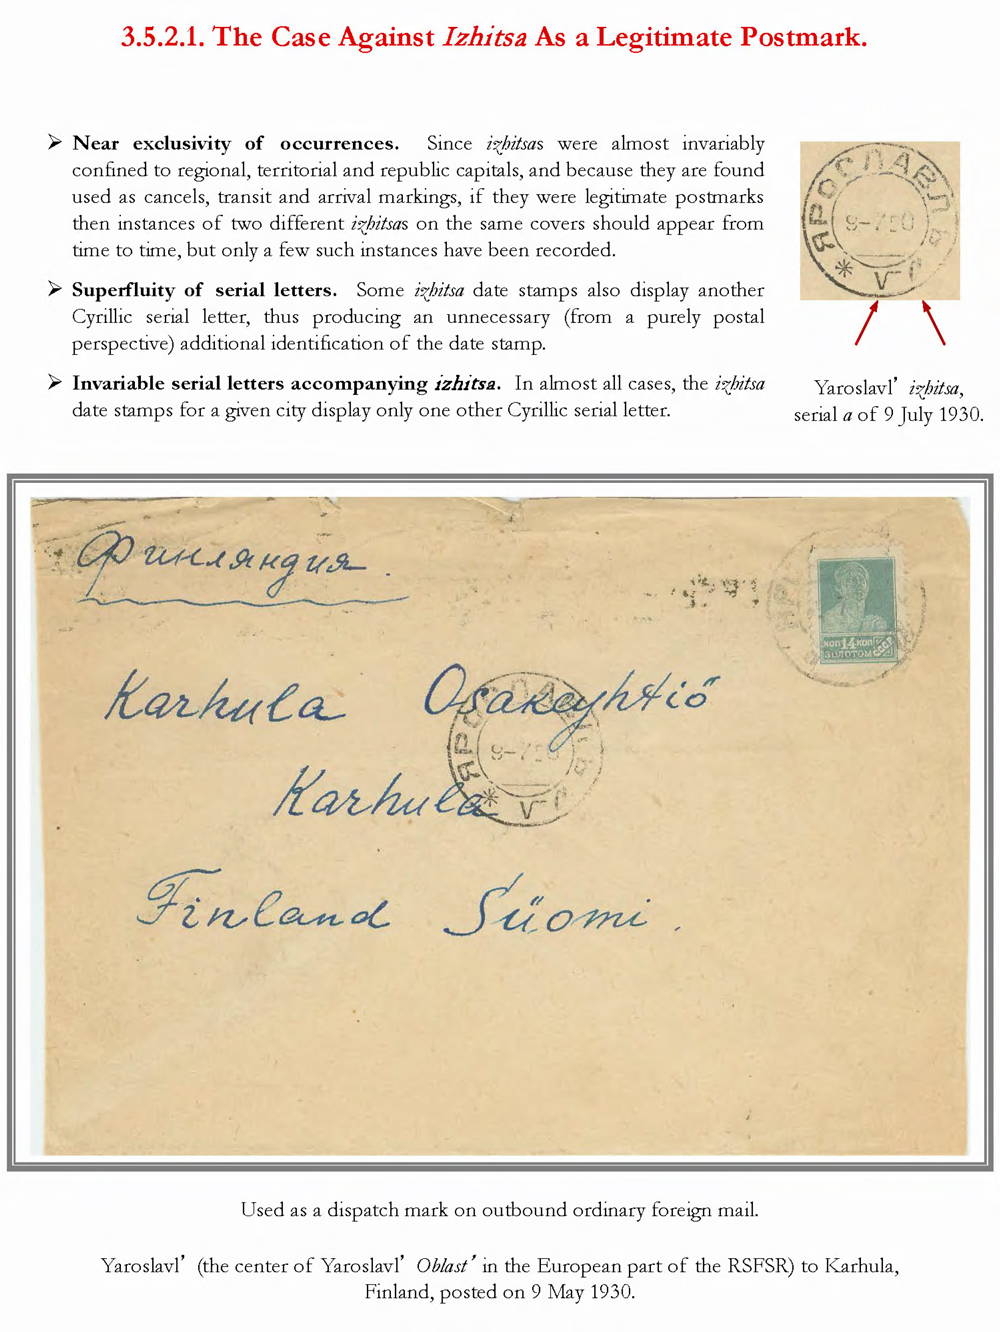 3.5.2.1. The Case Against Izhitsa As a Legitimate Postmark.
➢ Near exclusivity of occurrences. Since izhitsas were almost invariably
confined to regional, territorial and republic capitals, and because they are found
used as cancels, transit and arrival markings, if they were legitimate postmarks
then instances of two different izhitsas on the same covers should appear from
time to time, but only a few such instances have been recorded.
➢ Superfluity of serial letters. Some izhitsa date stamps also display another
Cyrillic serial letter, thus producing an unnecessary (from a purely postal
perspective) additional identification of the date stamp.
➢ Invariable serial letters accompanying izhitsa. In almost all cases, the izhitsa
date stamps for a given city display only one other Cyrillic serial letter.
ЯРОСЛАВЛЬ
Yaroslavl’ izhitsa,
serial a of 9 July 1930.
Финляндия.
коп 14 коп
ЗОЛОТОМ
СССР
Karhula Osakeyhtiö
ЯРОСЛАВЛЬ
Karhula
Finland Süomi.
Used as a dispatch mark on outbound ordinary foreign mail.
Yaroslavl’ (the center of Yaroslavl’ Oblast’ in the European part of the RSFSR) to Karhula,
Finland, posted on 9 May 1930.